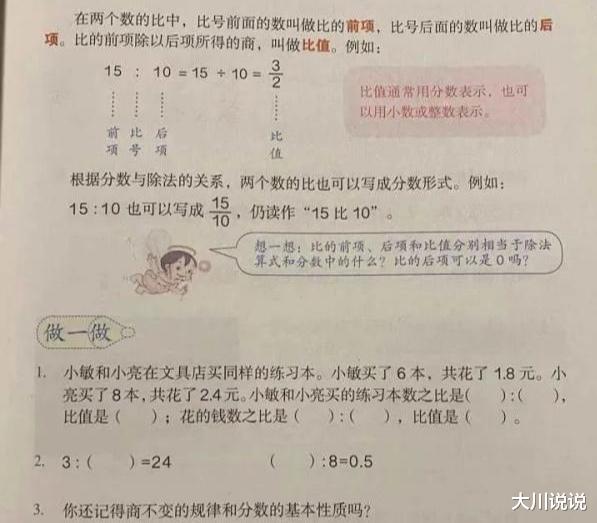 在两个数的比中，比号前面的数叫做比的前项，比号后面的数叫做比的后
项。比的前项除以后项所得的商，叫做比值。例如：
15 : 10 = 15 ÷ 10 = 3/2
前项 比号 后项 比值
比值通常用分数表示，也可
以用小数或整数表示。
根据分数与除法的关系，两个数的比也可以写成分数形式。例如：
15:10 也可以写成 15/10，仍读作“15 比 10”。
想一想：比的前项、后项和比值分别相当于除法
算式和分数中的什么？比的后项可以是 0 吗？
做一做
1. 小敏和小亮在文具店买同样的练习本。小敏买了 6 本，共花了 1.8 元。小
亮买了 8 本，共花了 2.4 元。小敏和小亮买的练习本数之比是( ):( )，
比值是( )；花的钱数之比是( ):( )，比值是( )。
2. 3:( )=24 ( ):8=0.5
3. 你还记得商不变的规律和分数的基本性质吗？
大川说说